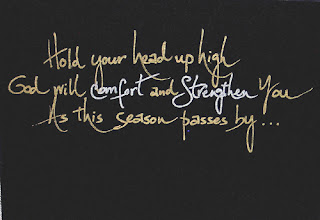 Hold your head up high
God will comfort and Strengthen You
As this season passes by...